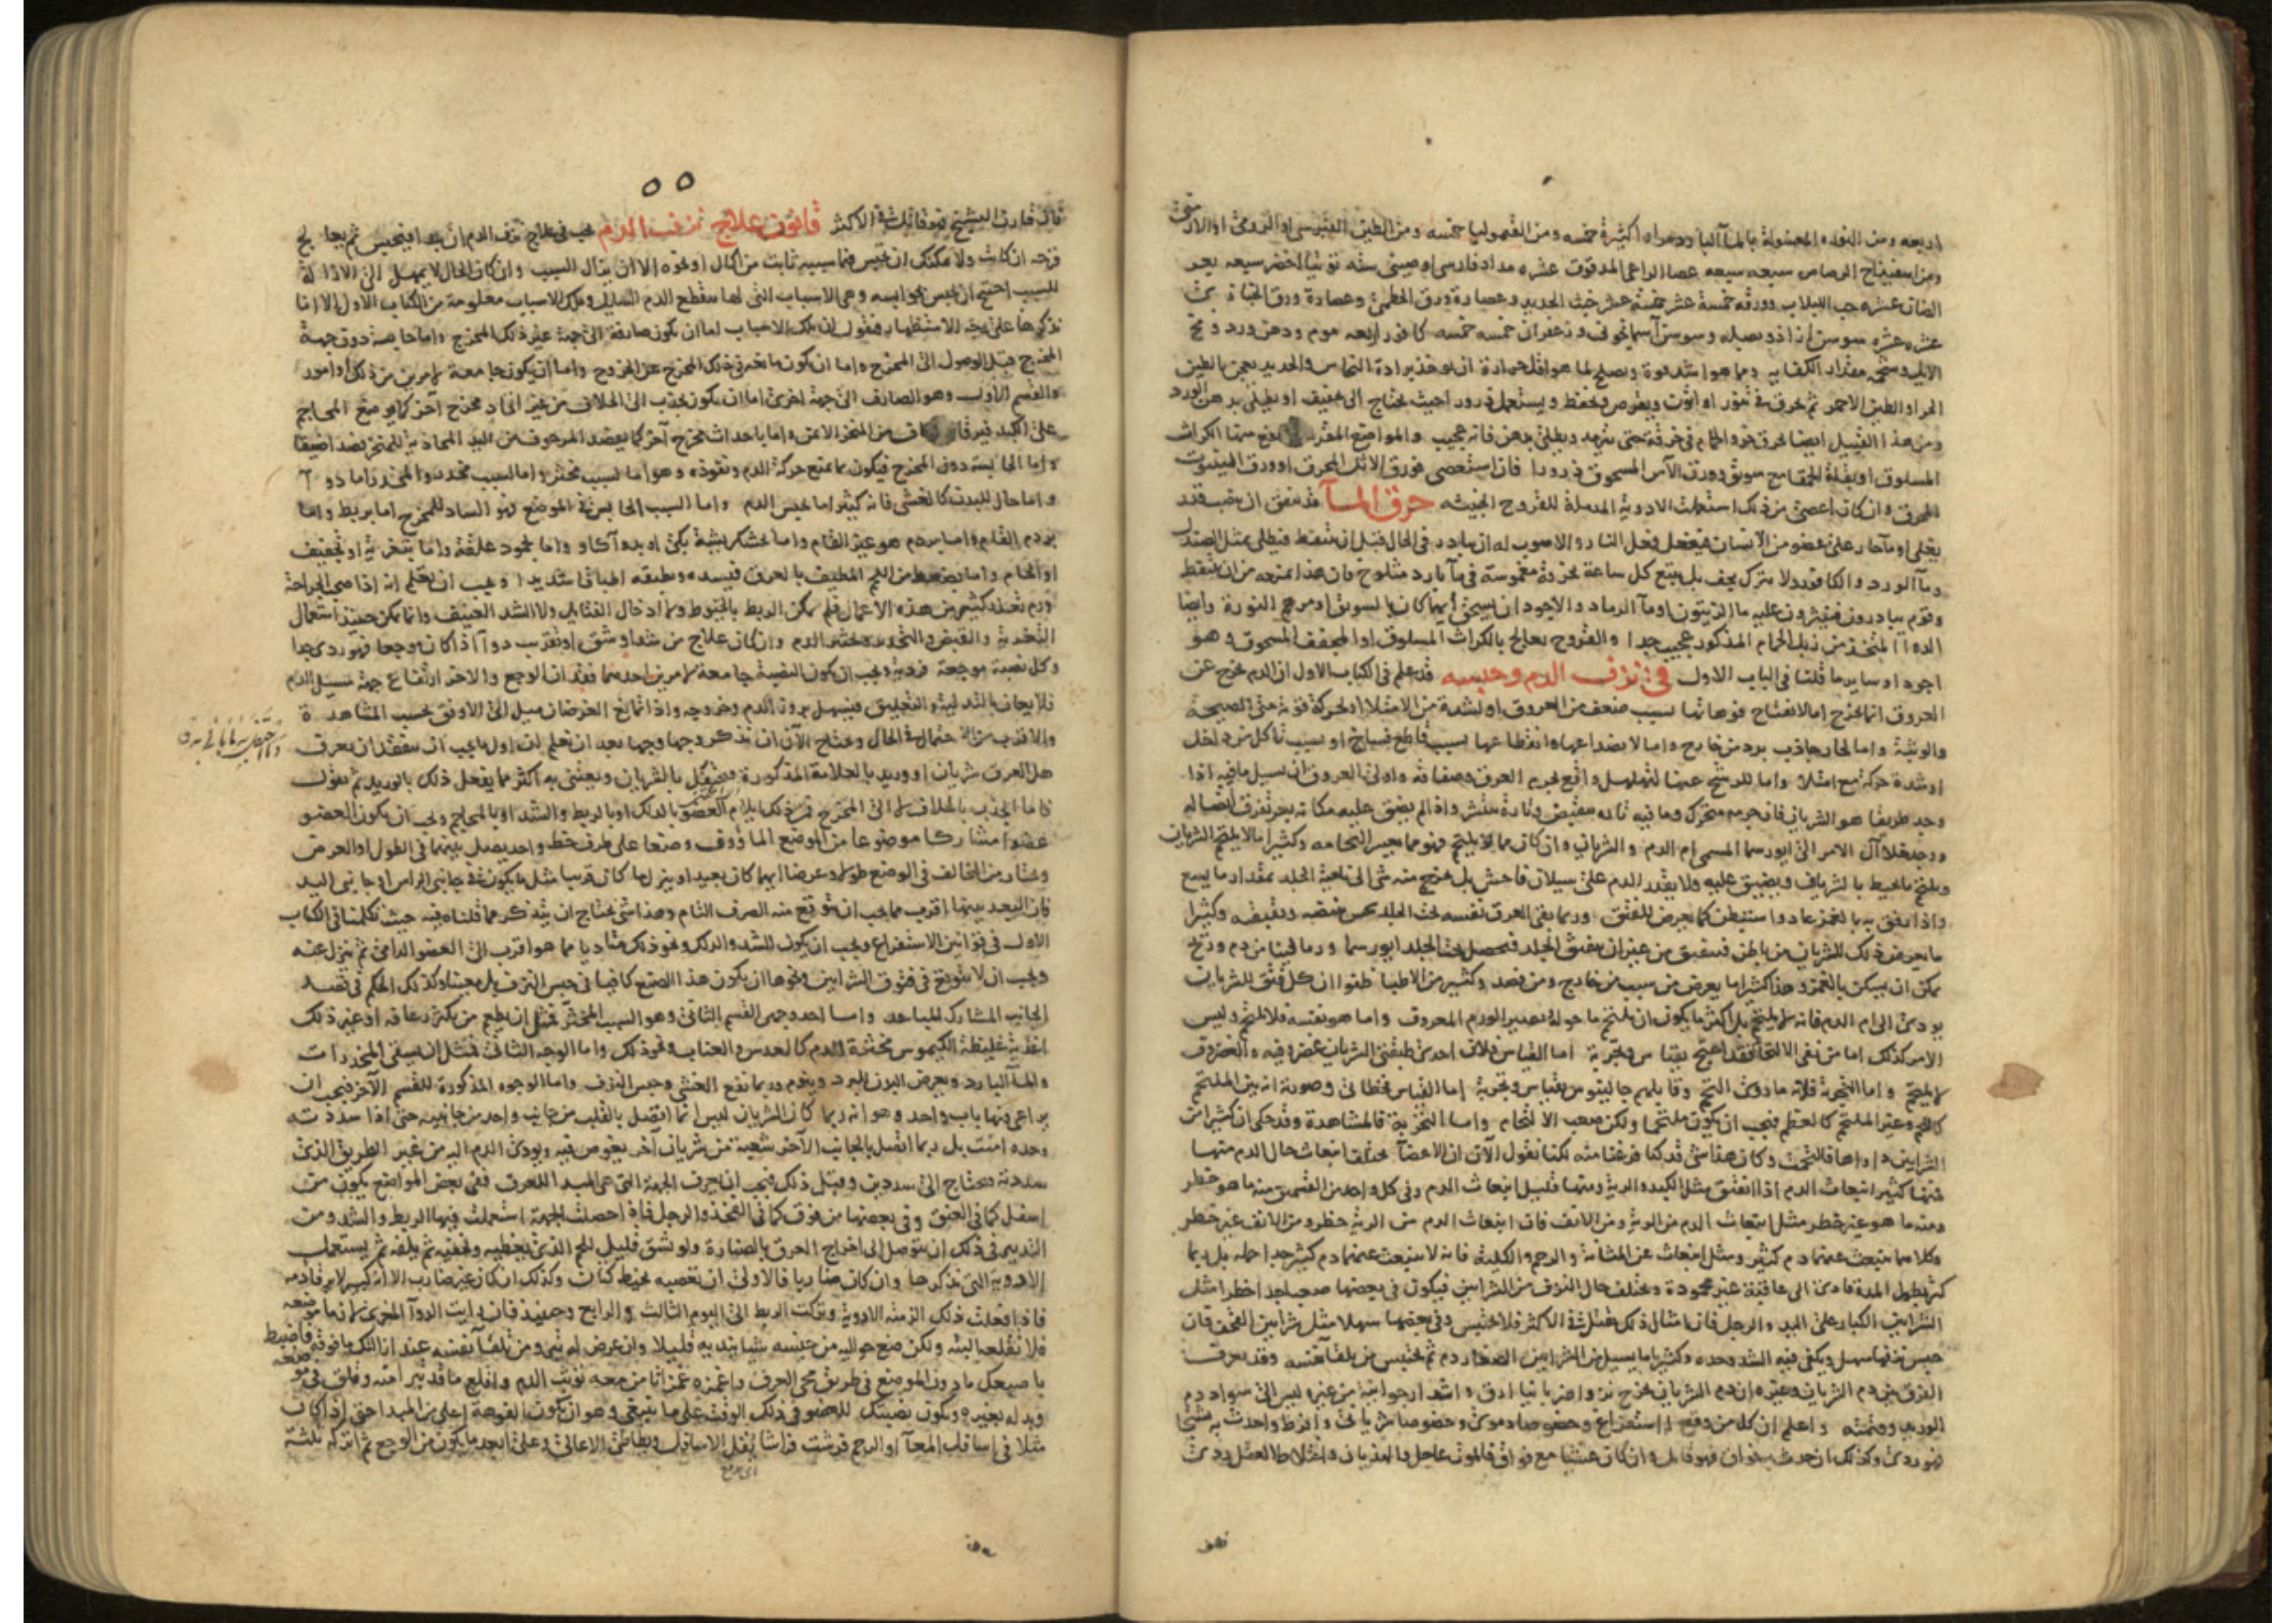 اربعه ومن النوره المغسولة بالماء
ومن اسفيذاج الرصاص سبعه سبعه عصا الراعى المدقوق عشره مداد فارسى او صينى سته توتيا اخضر سبعه
وورقه خمسة عشر خمسة عشر خبث الحديد وعصارة ورق الخطمى وعصارة ورق
عشره عشره سوسن ازاذ وبصله وسوسن آسمانجونى وزعفران خمسه خمسه كافور اربعه موم ودهن ورد ومخ
الايل وشحمه مقدار الكفايه ومما هو اشد قوة ويصلح لما هو اقل حرارة ان يوخذ برادة النحاس والحديد يعجن بالطين
الحر او الطين الاحمر ثم يحرق فى تنور او اتون ويقرص ويحفظ ويستعمل ذرورا حيث يحتاج الى تجفيف او يطلى بدهن الورد
ومن هذا القبيل ايضا يحرق خرو الحمام فى خرقة حتى يترمد ويطلى بدهن فانه عجيب والمواضع
المسلوق او بقلة الحمقا مع سويق وورق الآس المسحوق ذرورا فان استعصى فورق
المحرق وان كان اعصى من ذلك استعملت الادوية المدملة للقروح الخبيثه حرق المآ قد يتفق ان يصب قدر
يغلى او مآ حار على عضو من الانسان فيفعل فعل النار والاصوب له ان يبادر فى الحال قبل ان يتنفط فيطلى بمثل الصندل
ومآ الورد والكافور ولا يترك يجف بل يتبع كل ساعة بخرقة مغموسة فى مآ بارد مثلوج فان هذا يمنعه من ان يتنفط
وقوم يبادرون فينثرون عليه ما الزيتون او مآ الرماد والاجود ان يسخن ايهما كان بالسويق او مرهم النورة وايضا
الدوا المتخذ من زبل الحمام المذكور عجيب جدا والقروح يعالج بالكراث المسلوق او المجفف المسحوق وهو
اجود او ساير ما قلنا فى الباب الاول فى نزف الدم وحبسه قد علم فى الكتاب الاول ان الدم يخرج عن
العروق انما يخرج اما لانفتاح فوهاتها بسبب ضعف من العروق او لشدة من الامتلا او لحركة قوية حتى الصيحة
والوثبة واما لحار جاذب برد من خارج واما لانصداعها وانقطاعها بسبب قاطع فساخ او بسبب تاكل من داخل
او شدة حركة مع امتلا واما للرشح عنها لتهلهل واقع لجرم العرق وصفاقه واولى العروق ان يسيل ما فيه اذا
وجد طريقا هو الشريان فان جرمه متحرك وما فيه تارة ينقبض وتارة ينتشر واذا لم يضيق عليه مكانه
آل الامر الى ابورسما المسمى ام الدم والشريان وان كان مما يلتحم فهو مما يعسر التحامه وكثيرا ما لا يلتحم الشريان
ويلتحم ما يحيط بالشريان ويضيق عليه ولا يقدر الدم على سيلان فاحش بل يخرج منه شى الى ناحية الجلد بمقدار ما يسع
ما يعرض ذلك للشريان من باطن فينفتق من غير ان ينفتق الجلد فيحصل تحت الجلد ابورسما وربما
يمكن ان يسكن بالغمز وهذا كثيرا ما يعرض من سبب من خارج ومن فصد وكثير من الاطبا ظنوا ان كل فتق للشريان
يودى الى ام الدم فانه لا يلتحم بل اكثر ما يكون ان يلتحم ما حوله
الامر كذلك اما من نفى الالتحام فقد احتج بقياس وتجربة اما القياس فلان احدى طبقتى الشريان غضروفيه والغضروف
لا يلتحم واما التجربة فلانه ما روى التحم وقابلهم جالينوس بقياس وتجربة
وغير الملتحم كالعظم فيجب ان يكون ملتحما ولكن صعب الالتحام واما التجربة فالمشاهدة
الآن ان الاعضآ مختلفة انبعاث حال الدم منها
فمنها كثير انبعاث الدم اذا انفتق مثل الكبد والرية ومنها قليل انبعاث الدم وفى كل واحد من القسمين منه ما هو خطر
ومنه ما هو غير خطر مثل انبعاث الدم من الرية ومن الانف فان انبعاث الدم من الرية خطر ومن الانف غير خطر
وكلاهما ينبعث عنهما دم كثير ومثل انبعاث عن المثانة والرحم والكلية فانه لا ينبعث عنهما دم كثير جدا
لطول المدة فادى الى عاقبة غير محمودة ويختلف حال النزف من الشرايين فيكون فى بعضها صعبا جدا خطرا مثل
الشرايين الكبار على اليد والرجل فان امثال ذلك يقتل فى الاكثر فلا يحتبس وفى بعضها سهلا مثل شرايين القحف فان
حبس نزفها سهل ويكفى فيه الشد وحده وكثيرا ما يسيل من الشرايين الصغار دم ثم يحتبس من تلقآ نفسه وقد يعرف
الفرق بين دم الشريان وغيره ان دم الشريان يخرج نزوا ضربانيا ادق واشد ارجوانية من غيره ليس الى سواد دم
الوريد وقتمته واعلم ان كل من وقع استفراغ وخصوصا دموى وخصوصا شريانى وافرط واحدث به تشنجا
فهو ردى وكذلك ان حدث به فواق فهو قاتل وان كان غشيا مع فواق فالموت عاجل والهذيان واختلاط العقل ردى
٥٥
فان قارن التشنج فهو قاتل فى الاكثر قانون علاج نزف الدم يجب فى علاج نزف الدم ان يبدا فيحبس ثم يعالج
قرحه ان كانت ولا يمكنك ان تحبس فما سببه ثابت من اكال او نحوه الا ان يزال السبب وان كان الحال لا يمهل الى الازالة
للسبب احتيج ان يحبس بحوابسه وهى الاسباب التى لها ينقطع الدم السايل وتلك الاسباب معلومة من الكتاب الاول الا انا
نذكرها على جهة الاستظهار فنقول ان تلك الاسباب اما ان يكون صارفة الى جهة غير ذلك المخرج واما حابسة دون جهة
المخرج قبل الوصول الى المخرج واما ان يكون مانعه فى ذلك المخرج عن الخروج واما ان يكون جامعة لامرين من ذلك او امور
والقسم الاول وهو الصارف الى جهة اخرى اما ان يكون بجذب الى الخلاف من غير اتخاد مخرج آخر كما يوضع المحاجم
على الكبد فيرقا من المنخر الايمن واما باحداث مخرج آخر كما يفصد المرعوف من اليد المحاذية للمنخر فصدا ضيقا
واما الحابسة دون المخرج فيكون بما يمنع حركة الدم ونفوذه وهو اما لسبب مخثر واما لسبب مخدر والمخدر اما دوآ
واما حال للبدن كالغشى فانه كثيرا ما يحبس الدم واما السبب الحابس فى الموضع فهو الساد للمخرج اما بربط واما
بردم القام واما بردم هو غير القام واما بخشكريشة بكى او بدوآ كاو واما بجمود علقة واما بتغرية او تجفيف
او الحام واما بضغط من اللحم المطيف بالعرق فيسده ويطبقه اطباقا شديدا ويجب ان تعلم انه اذا صحب الجراحة
ورم تعذر كثير من هذه الاعمال فلم يمكن الربط بالخيوط ولا ادخال الفتايل ولا الشد العنيف وانما يمكن حينئذ استعمال
التغرية والقبض والتخدير الدم وان كان علاج من شد او شق او تقريب دوآ اذا كان موجعا فهو ردى جدا
وكل نصبة موجعة فردية ويجب ان يكون النصبة جامعة لامرين احدهما فقدان الوجع والآخر ارتفاع جهة مسيل الدم
فلا يعان بالتدلية والتعليق فيسهل بروز الدم وخروجه واذا تمانع الغرضان ميل الى الاوفق بحسب المشاهدة
والاقرب من الاحتمال فى الحال ويحتاج الآن ان نذكر وجها وجها بعد ان تعلم ان اول ما يجب ان يتفقد ان يعرف
هل العرق شريان او وريد بالعلامة المذكورة فيحتفل بالشريان ويعتنى به اكثر مما يفعل ذلك بالوريد ثم نقول
فاما الجذب بالخلاف لا الى المخرج فمن ذلك بايلام العضو بالدلك او بالربط والشد او بالمحاجم ويجب ان يكون العضو
عضوا مشاركا موضوعا من الموضع الماؤوف وضعا على طرف خط واحد يصل بينهما فى الطول او العرض
ويختار من المخالف فى الوضع طولا وعرضا ايهما كان بعيدا ويترك ما كان قريبا مثل ما يكون فى جانبى الراس او جانبى اليد
فان البعد بينهما اقرب مما يجب ان يتوقع منه الصرف التام وهذا شى يحتاج ان يتذكر مما قلناه فيه حيث تكلمنا فى الكتاب
الاول فى قوانين الاستفراغ ويجب ان يكون للشد والدلك ونحو ذلك متاديا مما هو اقرب الى العضو الدامى ثم ينزل عنه
ويجب ان لا يتوقع فى فتوق الشرايين ونحوها ان يكون هذا الصنع كافيا فى حبس النزف بل معينا وكذلك الحكم فى فصد
الجانب المشارك المباعد واما احد وجهى القسم الثانى وهو السبب المخثر فمثل ان يطعم من يكثر رعافه او غير ذلك
اغذية غليظة الكيموس مخثرة للدم كالعدس والعناب ونحو ذلك واما الوجه الثانى فمثل ان يسقى المخدرات
والمآ البارد ويعرض البدن للبرد وينوم وربما نفع الغشى وحبس النزف واما الوجوه المذكورة للقسم الآخر فيجب ان
يراعى فيها باب واحد وهو انه ربما كان الشريان ليس انما اتصل بالقلب من جانب واحد من جانبيه حتى اذا سددته
وحده امنت بل ربما اتصل بالجانب الآخر شعبة من شريان آخر يغوص فيه ويودى الدم اليه من غير الطريق الذى
سددته فيحتاج الى سددين وقبل ذلك فيجب ان يعرف الجهة التى هى المبدا للعرق ففى بعض المواضع يكون من
اسفل كما فى العنق وفى بعضها من فوق كما فى الفخذ والرجل فاذا حصلت الجهة استعملت فيها الربط والشد ومن
التدبير فى ذلك ان يتوصل الى اخراج العرق بالصنارة ولو بشق قليل للحم الذى يغطيه ويخفيه ثم يلفه ثم يستعمل
الادوية التى نذكرها وان كان ضاربا فالاولى ان تعصبه بخيط كتان وكذلك ان كان غير ضارب الا انه كبير لا يرقا دمه
فاذا فعلت ذلك الزمته الادوية وتركت الربط الى اليوم الثالث والرابع وحينئذ فان رايت الدوآ المغرى لازما موضعه
فلا تقلعه البته ولكن ضع حواليه من جنسه شيا ينديه قليلا وان عرض له شى ومن تلقآ نفسه عند ازالتك ما فوقه فاضبط
باصبعك ما دون الموضع فى طريق مجى العرق واغمزه غمزا تا من معه توثب الدم واقلع ما قد تبرا منه وقلق فى موضعه
وبدله بغيره ويكون نصبتك للعضو فى ذلك الوقت على ما ينبغى وهو ان يكون الفوهة اعلى من المبدا حتى اذا كان
مثلا فى اسافل المعآ او الرحم فرشت فراشا يقل الاسافل ويطاطى الاعالى وعلى ابعد ما يكون من الوجع ثم اتركه ثلثة